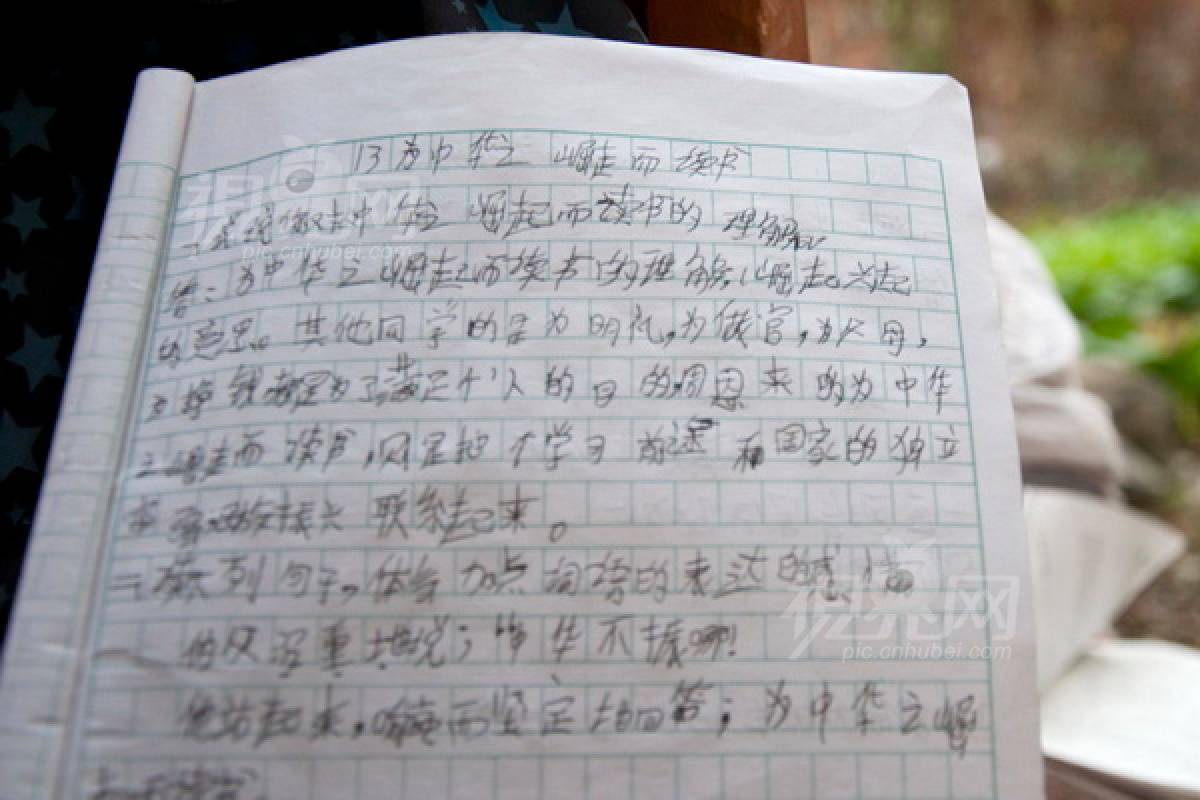 13为中华之崛起而读书
为中华之崛起而读书的理解
答:为中华之崛起而读书的理解,崛起兴起
的意思。其他同学的是为明礼,为做官,为父母,
为挣钱都是为了满足个人的目的周恩来的为中华
之崛起而读书,则是把个学习前途和国家的独立
振兴联系起来。
二 列句子。体会加点词语的表达的感情
伯父沉重地说;中华不振哪!
他站起来,而坚定地回答;为中华之崛
视界网
pic.cnhubei.com
视界网
pic.cnhubei.com